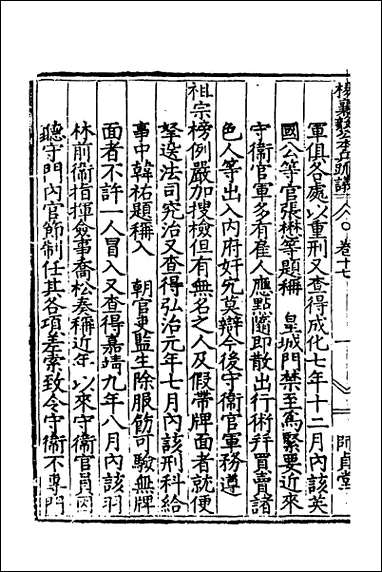 楊襄毅公本兵疏議 卷十七 師貞堂
軍俱各處以重刑又查得成化七年十二月內該英
國公等官張懋等題稱　皇城門禁至爲緊要近來
守衞官軍多有雇人應點隨即散出行術并買賣諸
色人等出入內府奸宄莫辯今後守衞官軍務遵
祖宗榜例嚴加搜檢但有無名之人及假帶牌面者就便
拏送法司究治又查得弘治元年七月內該刑科給
事中韓祐題稱入　朝官吏監生除服飭可驗無牌
面者不許一人冒入又查得嘉靖九年八月內該羽
林前衞指揮僉事喬松奏稱近年以來守衞官員因
聽守門內官節制任其各項差索致令守衞不專門